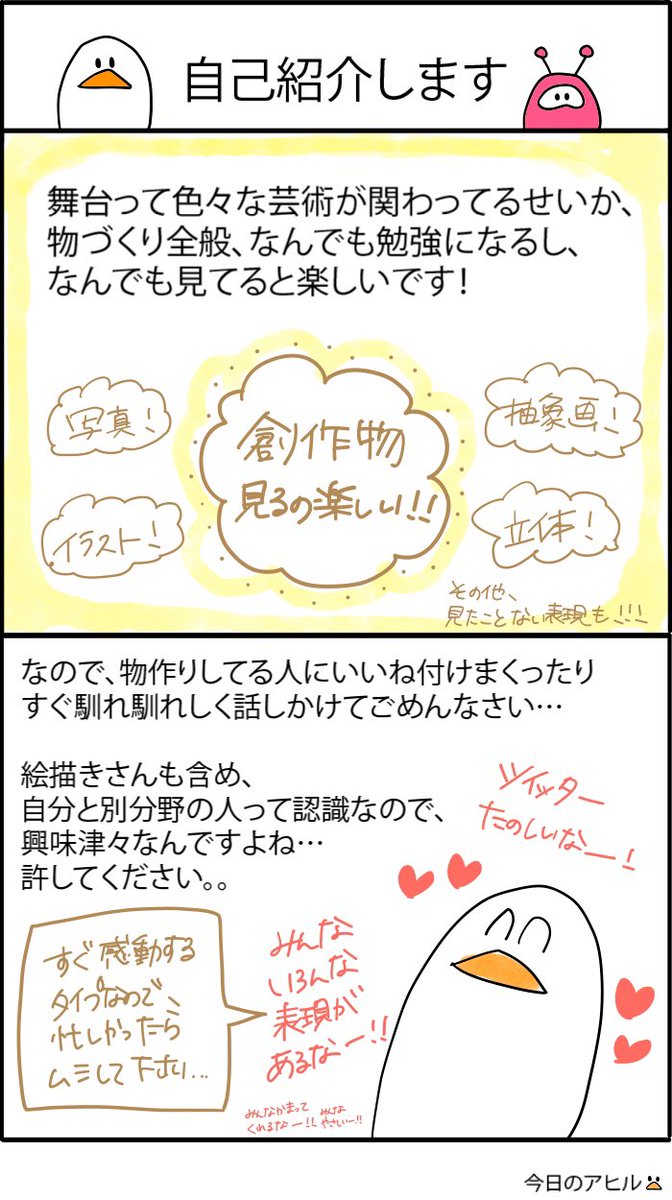 自己紹介します
舞台って色々な芸術が関わってるせいか、
物づくり全般、なんでも勉強になるし、
なんでも見てると楽しいです!
写真!
イラスト!
創作物
見るの楽しい!!
抽象画!
立体!
その他、
見たことない表現も!!!
なので、物作りしてる人にいいね付けまくったり
すぐ馴れ馴れしく話しかけてごめんなさい…
絵描きさんも含め、
自分と別分野の人って認識なので、
興味津々なんですよね…
許してください。。
ツイッター
たのしいなー!
すぐ感動する
タイプなので、
忙しかったら
ムシして下さい...
みんな
いろんな
表現が
あるなー!!
みんなかまって
くれるなー!!
みんな
やさしいー!!
今日のアヒル